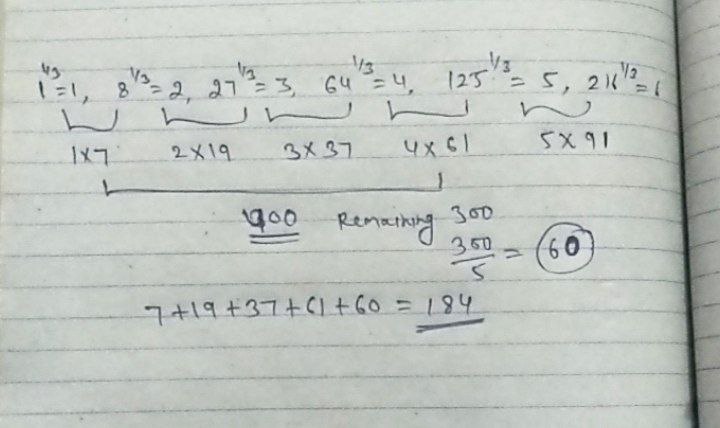 1^1/3=1, 8^1/3=2, 27^1/3=3, 64^1/3=4, 125^1/3=5, 216^1/3=6
1×7 2×19 3×37 4×61 5×91
400 Remaining 300
300/5 = 60
7+19+37+61+60 = 184